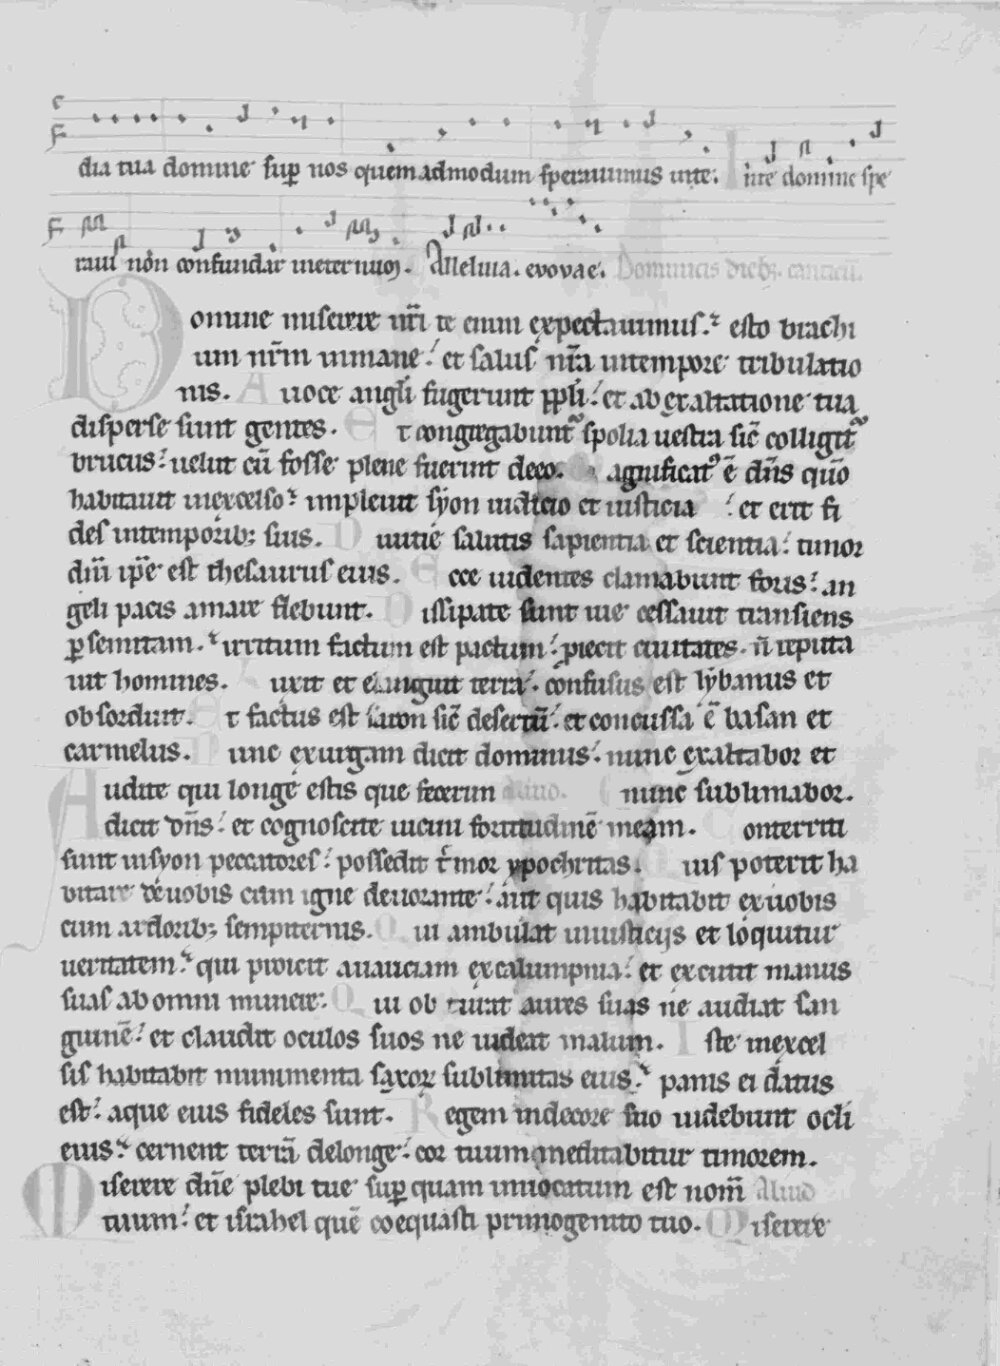 dia tua domine sup̄ nos quemadmodum sperauimus inte. Inte domine spe
raui non confundar ineternuꝫ. Alleluia. evovae. Dominicis dieb; canticū.
Domine miserere nr̄i te enim expectauimus. esto brachi
um nr̄m inmane. et salus nr̄a intempore tribulatio
nis. A uoce angl̄i fugerunt ppl̄i. et abexaltatione tua
disperse sunt gentes. Et congregabunt̄ spolia uestra sic̄ colligit̄
brucus. uelut cū fosse plene fuerint deeo. Magnificat᷒ ē dn̄s quō
habitauit inexcelso. impleuit syon iudicio et iusticia. et erit fi
des intemporib; suis. Diuitie salutis sapientia et scientia. timor
dn̄i ip̄e est thesaurus eius. Ecce uidentes clamabunt foris. an
geli pacis amare flebunt. Dissipate sunt uie cessauit transiens
ꝑsemitam. irritum factum est pactum. ꝓiecit ciuitates. n̄ reputa
uit homines. Luxit et elanguit terra. confusus est lybanus et
obsorduit. Et factus est saron sic̄ desertū. et concussa ē basan et
carmelus. Nunc exurgam dicit dominus. nunc exaltabor et
Audite qui longe estis que fecerim Aliud. nunc sublimabor.
dicit dn̄s. et cognoscite uicini fortitudinē meam. Conterriti
sunt insyon peccatores. possedit t̄mor ypochritas. Quis poterit ha
bitare dēuobis cum igne deuorante. aut quis habitabit exuobis
cum ardorib; sempiternis. Qui ambulat iniusticijs et loquitur
ueritatem. qui proicit auariciam excalumpnia. et excutit manus
suas abomni munere. Qui obturat aures suas ne audiat san
guinē. et claudit oculos suos ne uideat malum. Iste inexcel
sis habitabit munimenta saxoꝝ sublimitas eius. panis ei datus
est. aque eius fideles sunt. Regem indecore suo uidebunt ocl̄i
eius. cernent terrā delonge. cor tuum meditabitur timorem.
Miserere dn̄e plebi tue sup̄ quam inuocatum est nom̄ Aliud
tuum. et israhel quē coequasti primogenito tuo. Miserere